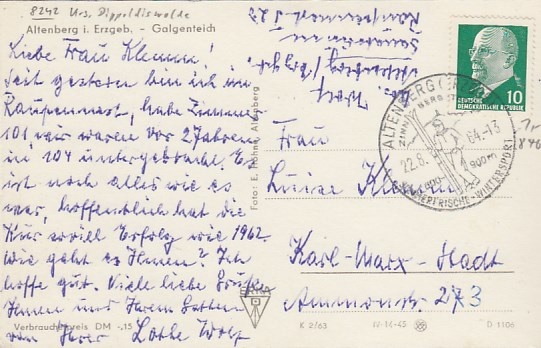 8242 Krs. Dippoldiswalde
Altenberg i. Erzgeb. - Galgenteich
Liebe Frau Klemm!
Seit gestern bin ich im
Raupennest, habe Zimmer
101, wir waren vor 2 Jahren
in 104 untergebracht. Es
ist noch alles wie es
war, hoffentlich hat die
Kur soviel Erfolg wie 1962.
Wie geht es Ihnen? Ich
hoffe gut. Viele liebe Grüße
Ihnen und Ihrem Gatten
von Ihrer Lothe Wolf
Verbraucherpreis DM -,15
Foto: E. Höhne, Altenberg
L. Wolf
Altenberg/Erzgeb.
Sanatorium
Raupennest
Frau
Luise Klemm
Karl-Marx-Stadt
Ammonstr. 273
DEUTSCHE
DEMOKRATISCHE REPUBLIK
10
ALTENBERG
22.8.
64-13
SOMMERFRISCHE-WINTERSPORT
K 2/63
IV-14-45
D 1106